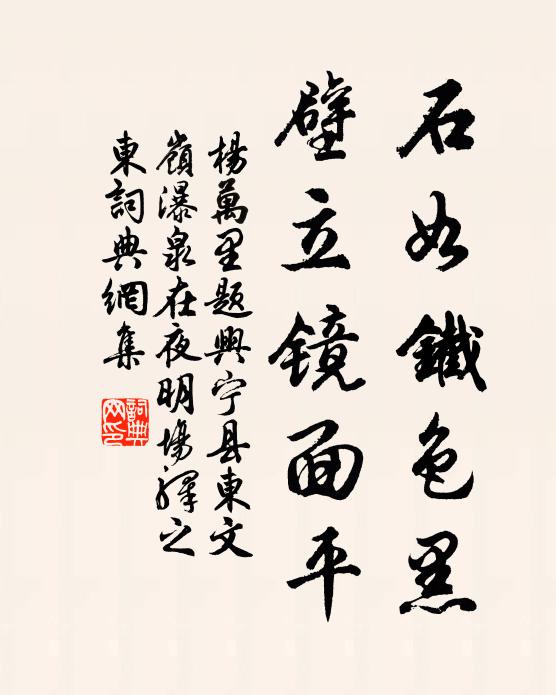 石如鐵色黑
壁立镜面平
楊萬里题興宁县東文
嶺瀑泉在夜明場驛之
東詞典網集
詞典網印